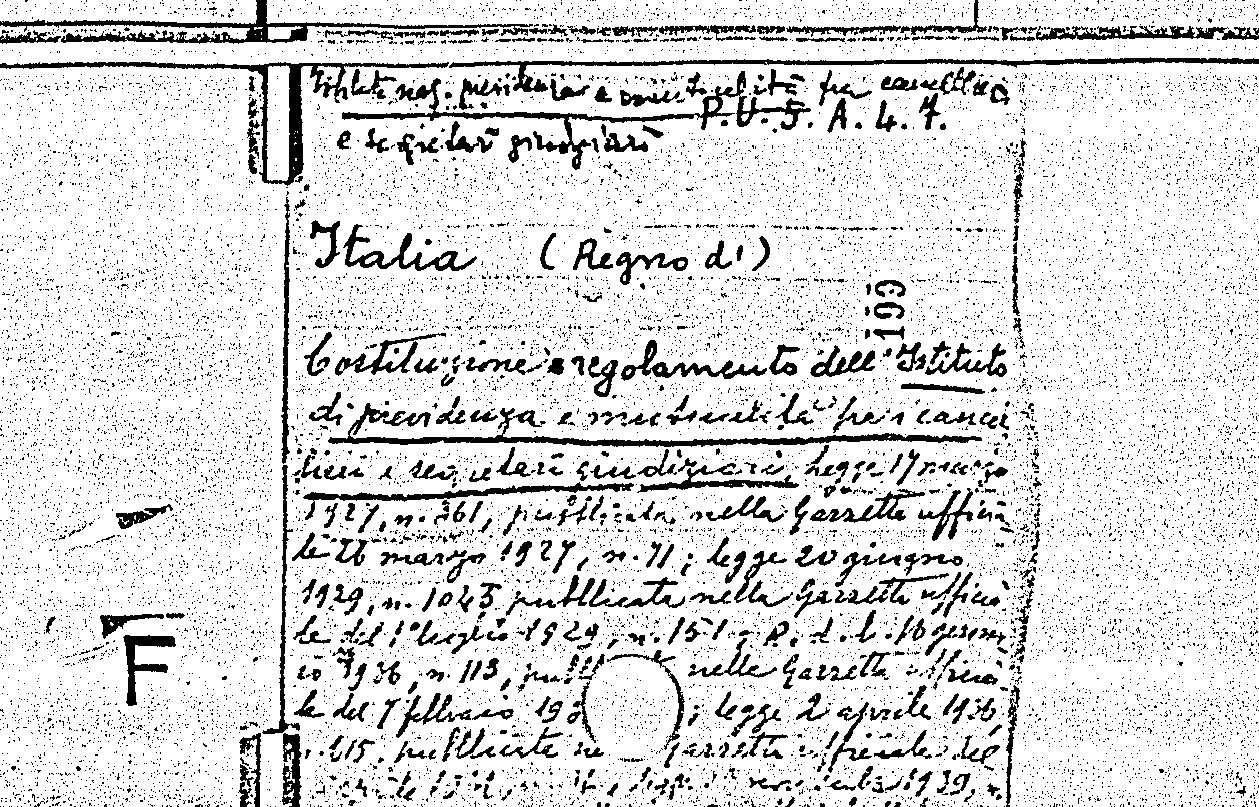 Istituto naz. previdenza e mutualità fra cancellieri
P.U.S. A. 4. 7.
e segretari giudiziari
Italia (Regno d')
199
Costituzione e regolamento dell'Istituto
di previdenza e mutualità fra i cancel
lieri e segretari giudiziari. Legge 17 marzo
1927, n. 361, pubblicata nella Gazzetta uffici
le 26 marzo 1927, n. 71; legge 20 giugno
1929, n. 1045 pubblicata nella Gazzetta uffici
le del 1° luglio 1929, n. 151; R. d. l. 16 genna
io 1936, n. 113, pubbl nella Gazzetta uffici
le del 7 febbraio 193 ; legge 2 aprile 1936,
n. 615, pubblicata ne Gazzetta ufficiale del
legge 1939, n.
F